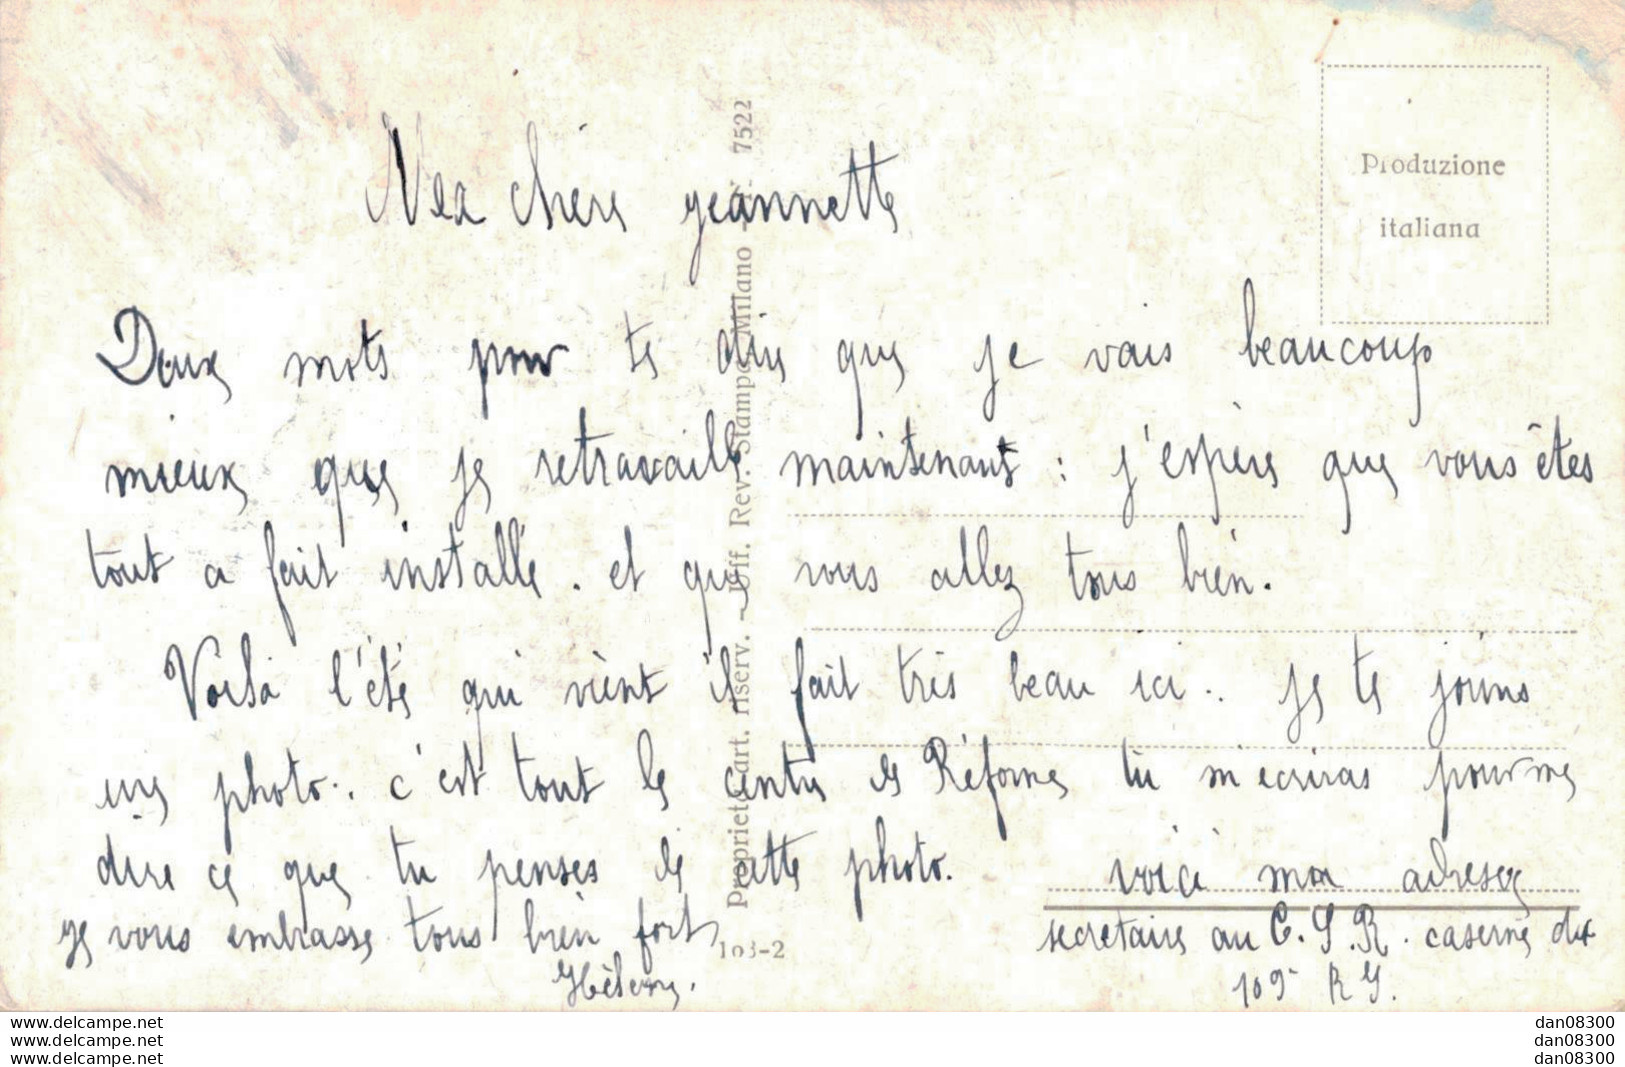 Ma chère jeannette
Deux mots pour te dire que je vais beaucoup
mieux que je retravaille maintenant : j'espère que vous êtes
tout a fait installé. et que vous allez tous bien.
Voilà l'été qui vient il fait très beau ici.. je te joins
une photo.. c'est tout le centre de Réforme tu m'ecriras pour me
dire ce que tu penses de cette photo. voici mon adresse
secretaire au C.S.R. caserne du
109e R G.
je vous embrasse tous bien fort
Hélène.
Produzione
italiana
Propriet. Cart. riserv. - Uff. Rev. Stampe Milano - 7522
103-2
www.delcampe.net
www.delcampe.net
www.delcampe.net
dan08300
dan08300
dan08300